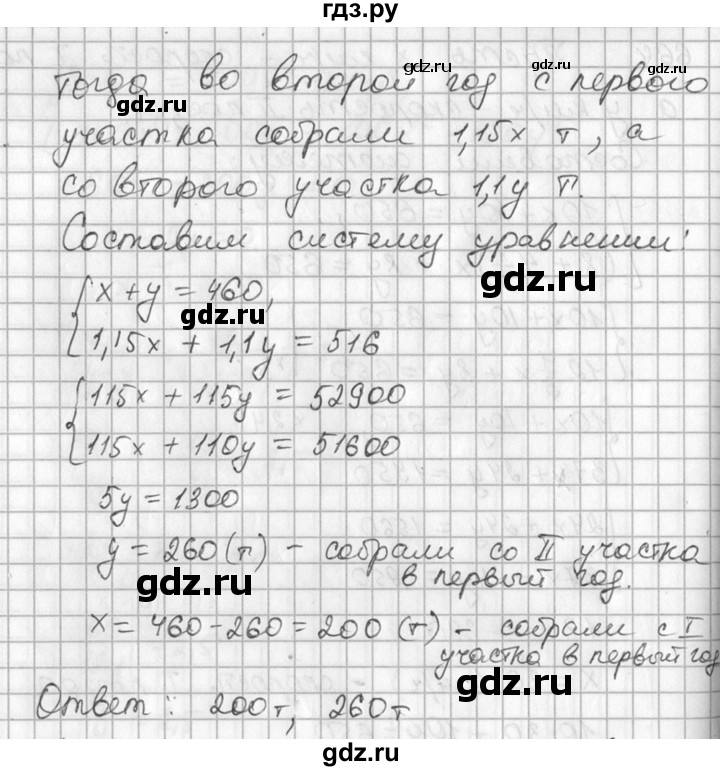 гдз.ру
Тогда во второй год с первого
gdz.ru
gdz.ru
gdz.ru
участка собрали 1,15x т, а
со второго участка 1,1y т.
Составим систему уравнений:
gdz.ru
x + y = 460,
gdz.ru
1,15x + 1,1y = 516
115x + 115y = 52900
115x + 110y = 51600
5y = 1300
y = 260 (т) - собрали со II участка
в первый год.
gdz.ru
x = 460 - 260 = 200 (т) - собрали с I
участка в первый год
gdz.ru
Ответ: 200 т, 260 т
gdz.ru
gdz.ru